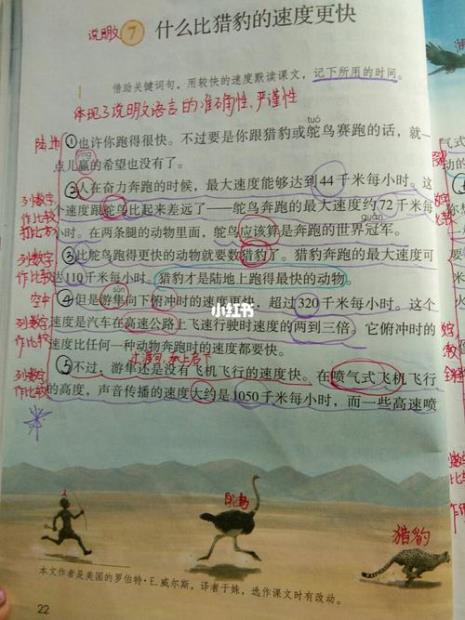 说明文 7 什么比猎豹的速度更快
借助关键词句，用较快的速度默读课文，记下所用的时间。
体现了说明文语言的准确性、严谨性
tuó
陆上 ①也许你跑得很快。不过要是你跟猎豹或鸵鸟赛跑的话，就一
点儿赢的希望也没有了。
②人在奋力奔跑的时候，最大速度能够达到44千米每小时。这
列数字 个速度跟鸵鸟比起来差远了——鸵鸟奔跑的最大速度约72千米每
作比较
guàn
小时。在两条腿的动物里面，鸵鸟应该算是奔跑的世界冠军。
列数字 ③比鸵鸟跑得更快的动物就要数猎豹了。猎豹奔跑的最大速度可
作比较 达110千米每小时。猎豹才是陆地上跑得最快的动物。
sǔn
空中 ④但是游隼向下俯冲时的速度更快，超过320千米每小时。这个
小红书
列数字 速度是汽车在高速公路上飞速行驶时速度的两到三倍。它俯冲时的
作比较 速度比任何一种动物奔跑时的速度都要快。
列数字 ⑤不过，游隼还是没有飞机飞行的速度快。在喷气式飞机飞行
作比较 的高度，声音传播的速度大约是1050千米每小时，而一些高速喷
人
鸵鸟
猎豹
本文作者是美国的罗伯特·E.威尔斯，译者于姝，选作课文时有改动。
22